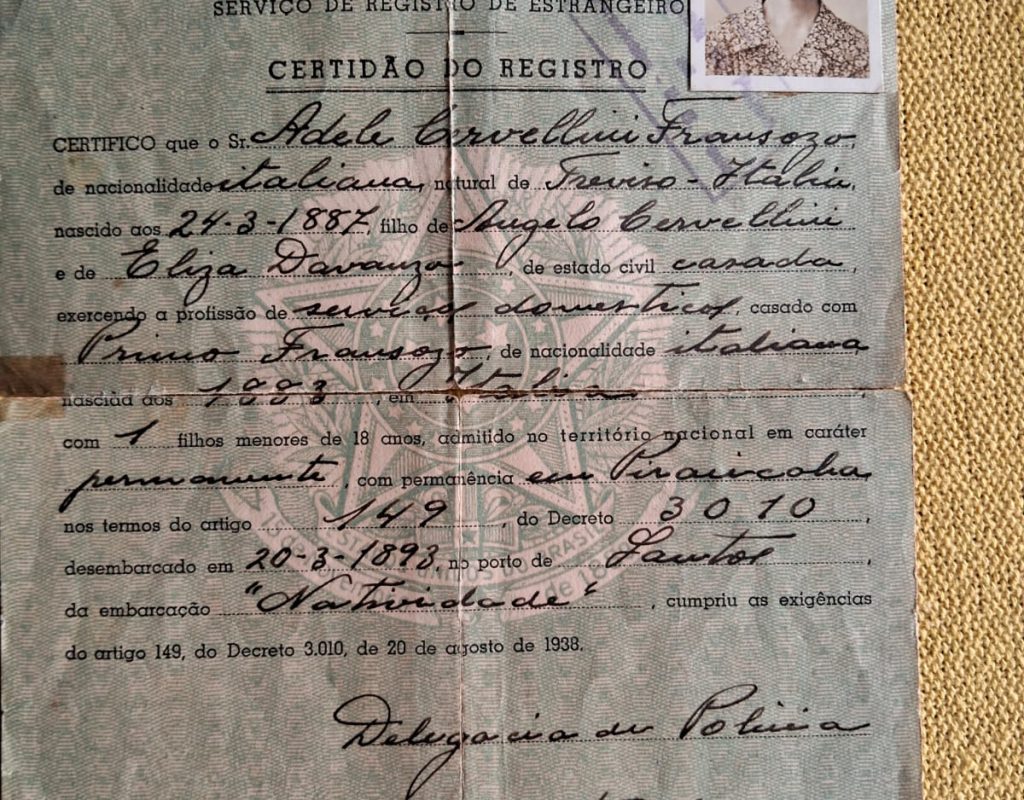 SERVIÇO DE REGISTRO DE ESTRANGEIRO
CERTIDÃO DO REGISTRO
CERTIFICO que o Sr. Adele Cervellini Fransozo,
de nacionalidade italiana, natural de Treviso - Italia,
nascido aos 24-3-1887, filho de Angelo Cervellini
e de Eliza Davanzo, de estado civil casada,
exercendo a profissão de serviços domesticos, casado com
Primo Fransozo, de nacionalidade italiana
nascida aos 1883, em Italia,
com 1 filhos menores de 18 anos, admitido no território nacional em caráter
permanente, com permanência em Piracicaba
nos termos do artigo 149, do Decreto 3010,
desembarcado em 20-3-1893, no porto de Santos,
da embarcação "Natividade", cumpriu as exigências
do artigo 149, do Decreto 3.010, de 20 de agosto de 1938.
Delegacia de Policia